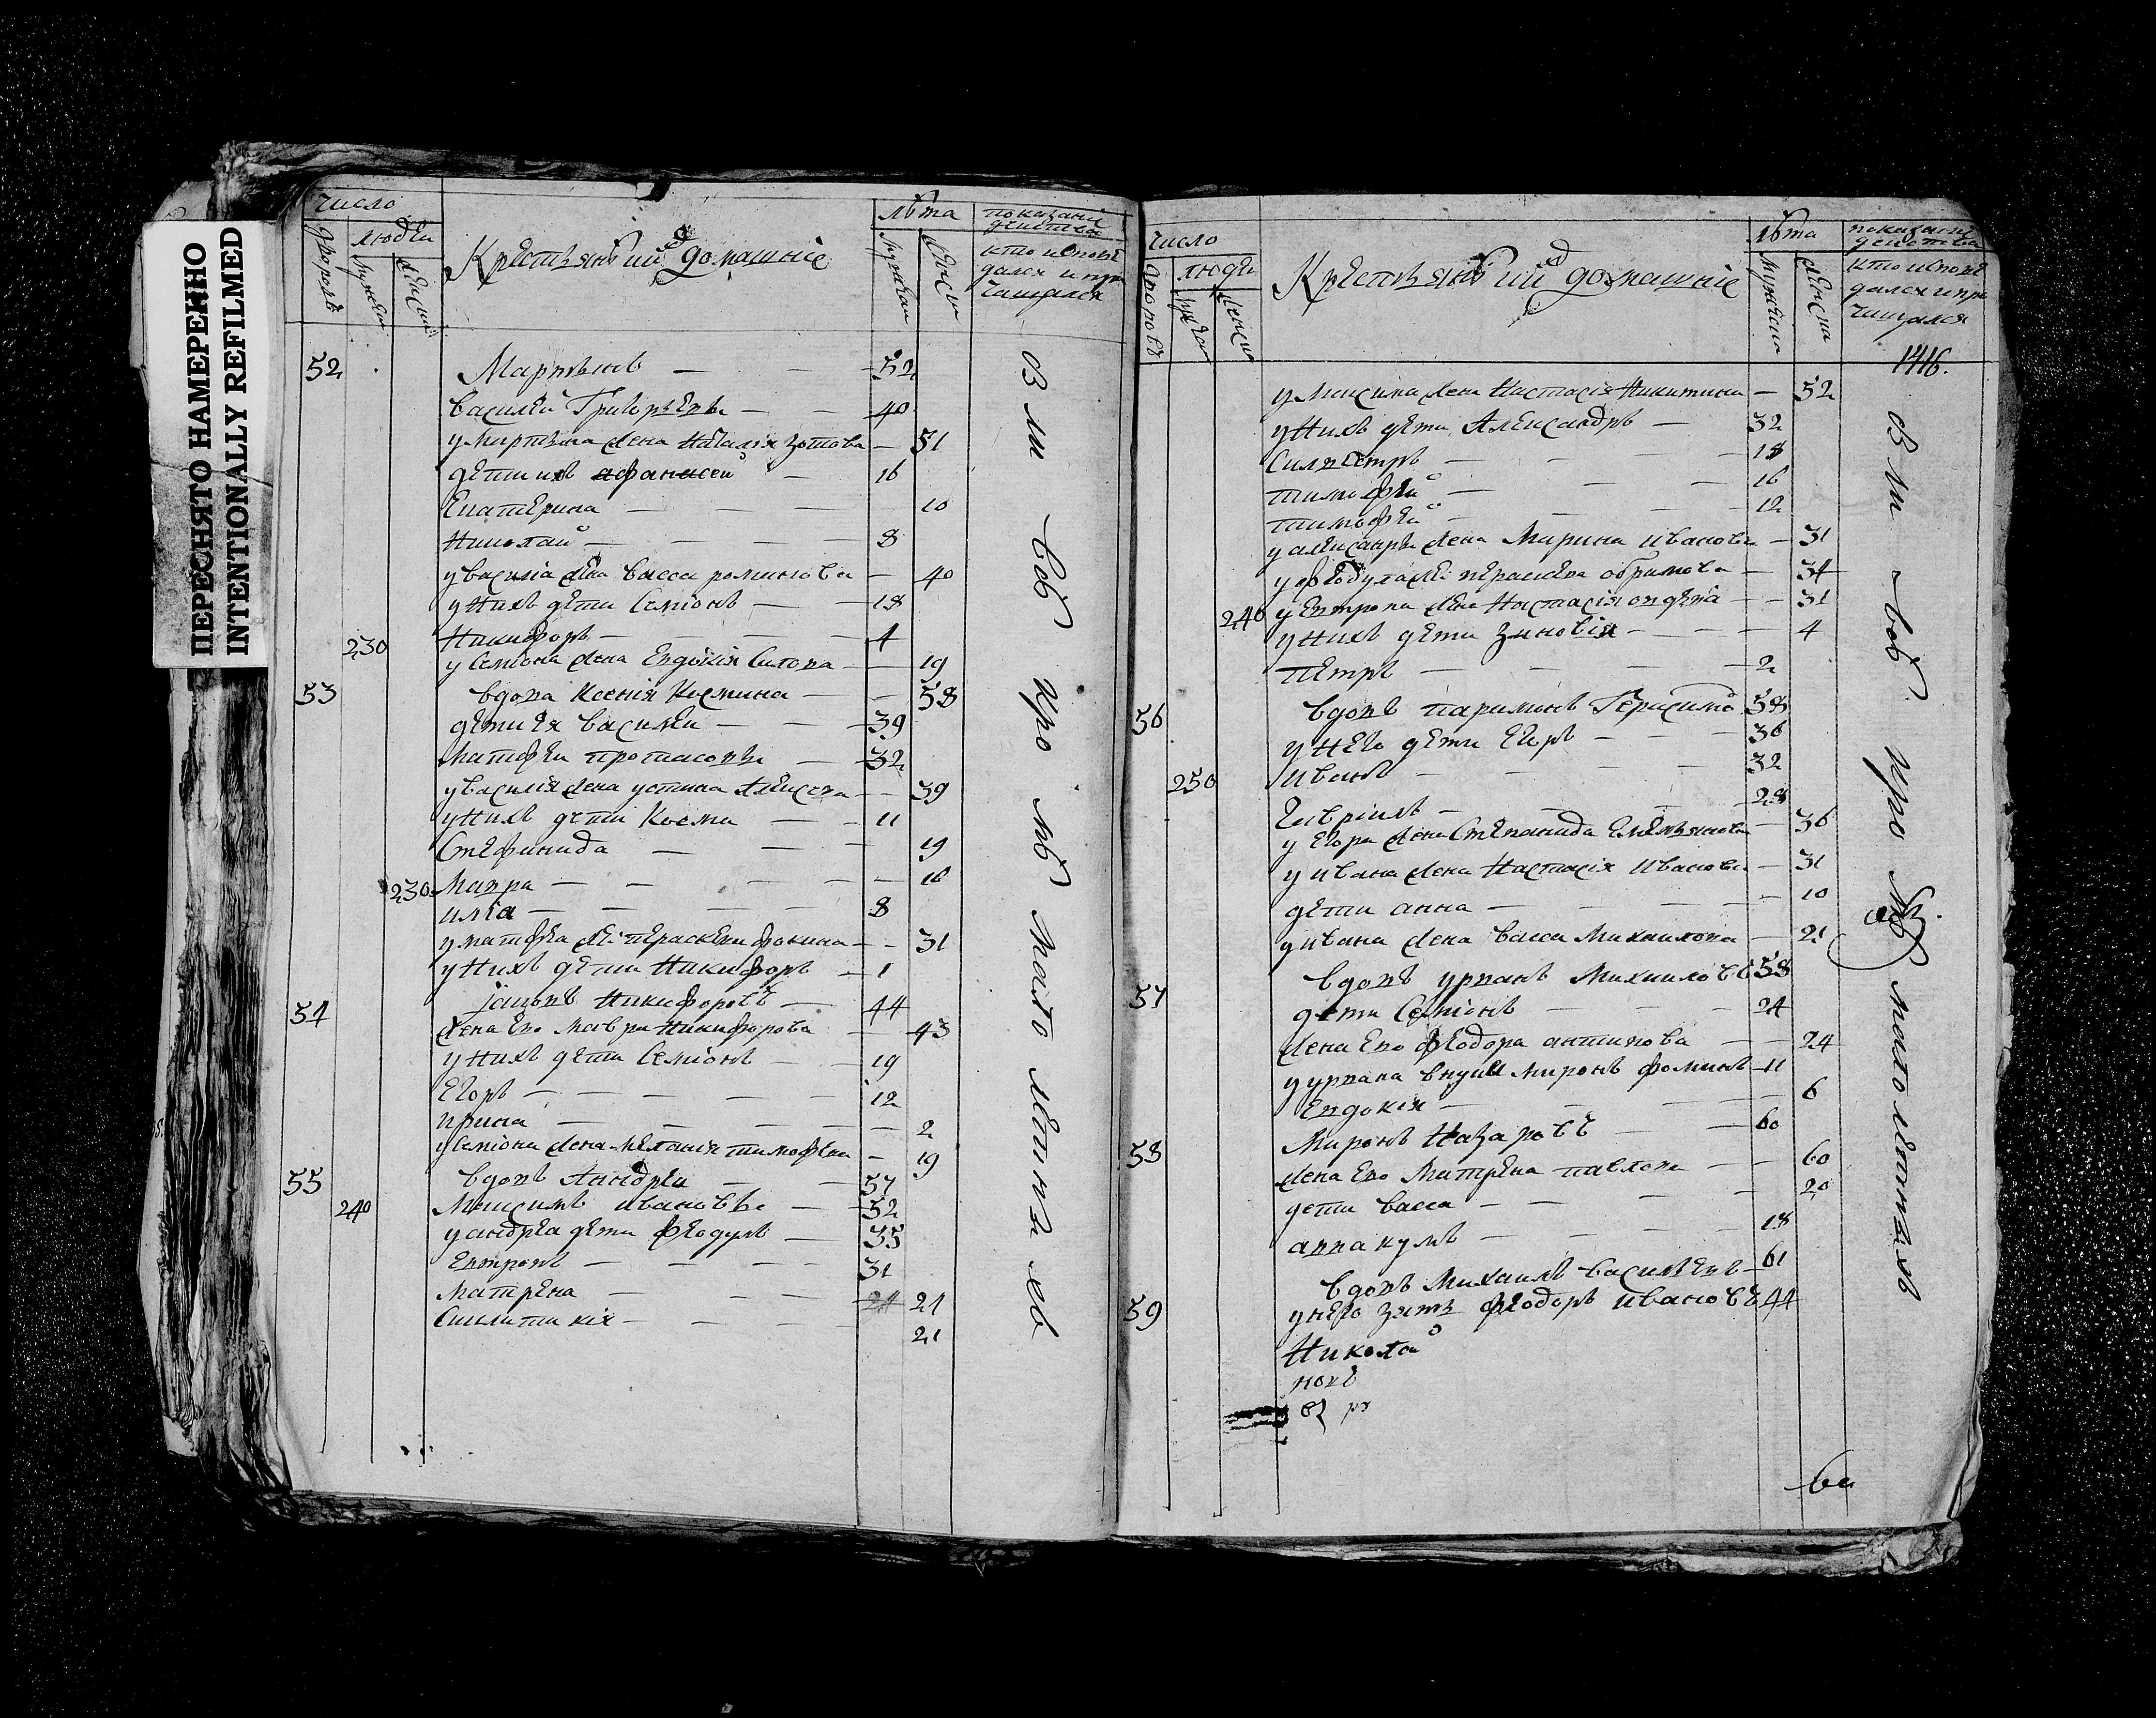 ПЕРЕСНЯТО НАМЕРЕННО
INTENTIONALLY REFILMED
число
дворовъ
людеи
мужеска
женска
Крестьянѣ и ихъ домашніе
лѣта
мужеска
женска
показаніе
действа
кто исповѣ
дался и при
чащался
52 Мартынъ — 52
василеи Григорьевы — 40
у мартына жена наталія зотова — 51
дети ихъ афанасеи — 16
Екатерина — 10
Николаи — 8
у василія жена васса романова — 40
у Нихъ дети Семіонъ — 18
230 Никифоръ — 4
у Семіона жена Евдокія Силова — 19
53 вдова Ксенія Космина — 58
дети ея василеи — 39
матфеи протасовы — 32
у василія жена устина Алексева — 39
у Нихъ дети Косма — 11
Стефанида — 19
230 Мавра — 16
илїа — 8
у матфеа же: параскева фокина — 31
у Нихъ дети Никифоръ — 1
54 Іаковъ Никифоровъ — 44
жена его мавра Никифорова — 43
у Нихъ дети Семіонъ — 19
Егоръ — 12
ирина — 2
у Семіона жена меланія тимофева — 19
55 вдовъ Андреи — 57
240 Максимъ ивановы — 52
у андреа дети Феодулъ — 35
Евтропъ — 31
матрена — 24 21
Сиклитикія — 21
въ ли вѣ кро мѣ мало летнъ хъ
число
дворовъ
людеи
мужска
женска
Крестьянѣ и ихъ домашніе
лѣта
мужеска
женска
показаніе
действа
кто исповѣ
дался и при
чащался
1416.
у максима жена Настасія Никитина — 52
у Нихъ дети Александръ — 32
Силвестръ — 18
тимофеи — 16
тимофеи — 12
у александра жена Марина иванова — 31
у феодула же: параскева абрамова — 34
240 у Евтропа жена Настасія авдеева — 31
у Нихъ дети зиновіа — 4
петръ — 2
56 вдовъ парамонъ Герасимо 58
у него дети Егоръ — 36
250 иванъ — 32
Гавріилъ — 28
у Егора жена Степанида Емельянова — 36
у ивана жена Настасія иванова — 31
дети анна — 10
у ивана жена васса Михаилова — 21
57 вдовъ урванъ Михаиловъ 58
дети Семіонъ — 24
жена его феодора антипова — 24
у урвана внуки миронъ фоминъ — 11
Евдокія — 6
58 Миронъ Назаровъ — 60
жена его Матрена павлова — 60
дети васса — 20
аввакумъ — 18
59 вдовъ Михаилъ василевъ — 61
у него зять феодоръ ивановъ 44
Николаи
въ ли вѣ кро мѣ мало летнъ хъ